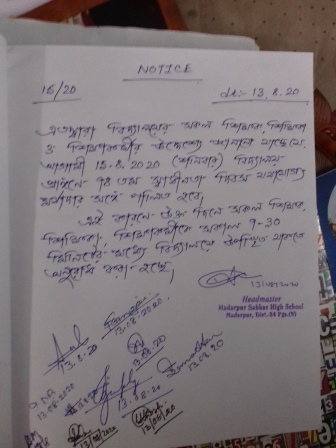 NOTICE
16/20 dt:- 13.8.20
এতদ্বারা বিদ্যালয়ের সকল শিক্ষক, শিক্ষিকা
ও শিক্ষাকর্মীর উদ্দেশ্যে জানানো যাচ্ছে যে,
আগামী 15.8.2020 (শনিবার) বিদ্যালয়
প্রাঙ্গণে ৭৪ তম স্বাধীনতা দিবস যথাযোগ্য
মর্যাদার সঙ্গে পালিত হবে।
এই কারণে উক্ত দিনে সকল শিক্ষক,
শিক্ষিকা, শিক্ষাকর্মীকে সকাল 9-30
মিনিটের মধ্যে বিদ্যালয়ে উপস্থিত থাকতে
অনুরোধ করা হচ্ছে।
13/08/2020
Headmaster
Madarpur Subhas High School
Madarpur, Dist.-24 Pgs.(N)
13.08.2020.
13.8.20
13.08.2020
13.08.20
13.08.2020
13.8.20
13/08/2020
13/08/20